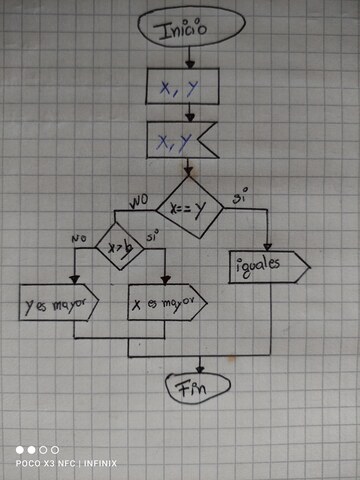 Inicio
X, Y
X, Y
NO
X==Y
Si
NO
X>b
Si
iguales
Y es mayor
X es mayor
Fin
POCO X3 NFC | INFINIX